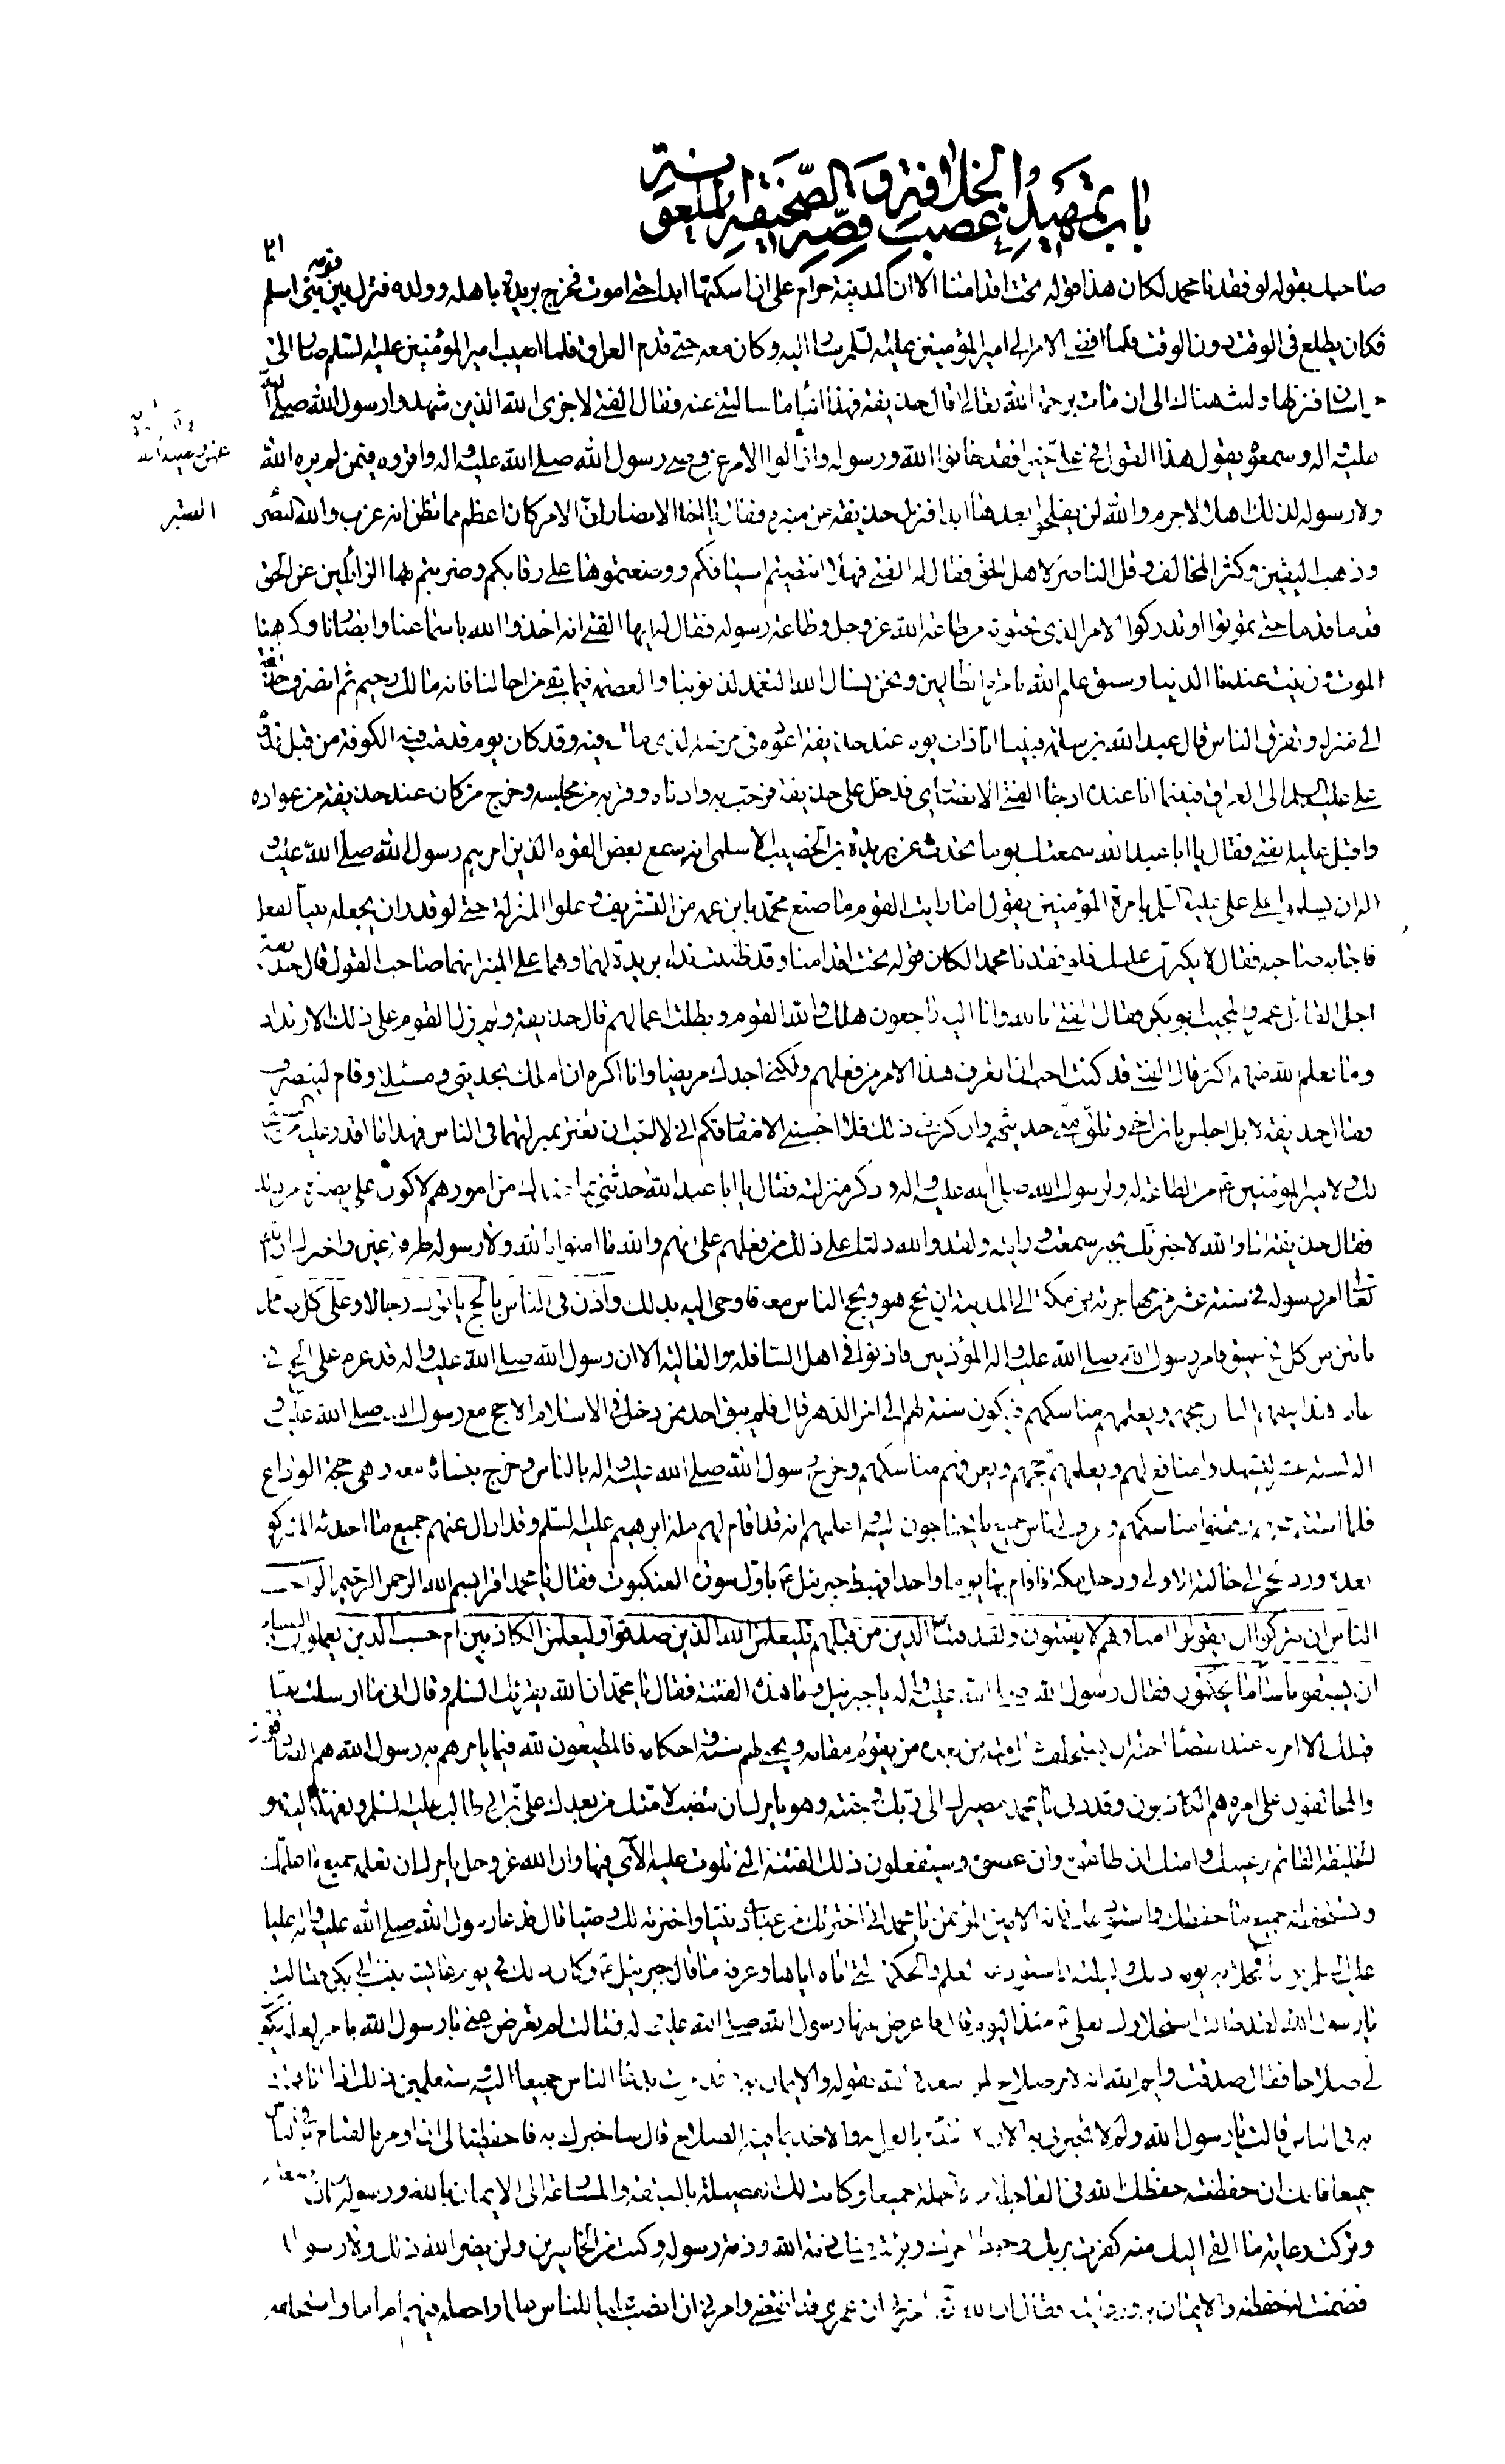 باب تمهيد غصب الخلافة و قصة الصحيفة الملعونة
٢١
صاحبك بقوله لو فقدنا محمدا لكان هذا قوله تحت اقدامنا الا ان المدينة حرام على ان اسكنها ابدا حتى اموت فخرج بريدة باهله وولده فنزل بين قومه بنى اسلم
فكان يطلع فى الوقت دون الوقت فلما افضى الامر الى امير المؤمنين عليه السلم سار اليه وكان معه حتى قدم العراق فلما اصيب امير المؤمنين عليه السلم صار الى
خراسان فنزلها ولبث هناك الى ان مات يرحمه الله تعالى قال حذيفة فهذا انباء ما سالتنى عنه فقال الفتى لا جزى الله الذين شهدوا رسول الله صلى الله
عليه واله وسمعوه يقول هذا القول فى على خيرا فقد خانوا الله ورسوله وازالوا الامر عن وصى رسول الله صلى الله عليه واله واقروه فيمن لم يره الله
ولا رسوله لذلك اهلا لا جرم والله لن يفلحوا بعدها ابدا فنزل حذيفة من منبره فقال يا اخا الانصار ان الامر كان اعظم مما تظن انه عزب والله البصر
وذهب اليقين وكثر المخالف وقل الناصر لاهل الحق فقال له الفتى فهلا انتضيتم اسيافكم ووضعتموها على رقابكم وضربتم بها الزائلين عن الحق
قدما قدما حتى تموتوا او تدركوا الامر الذى تحبونه من طاعة الله عز وجل وطاعة رسوله فقال له ايها الفتى انه اخذ والله باسماعنا وابصارنا وكرهنا
الموت وزينت عندنا الدنيا وسبق علم الله بامرة الظالمين ونحن نسال الله التغمد لذنوبنا والعصمة فيما بقى من اجالنا فانه مالك رحيم ثم انصرف حذيفة
الى منزله وتفرق الناس قال عبد الله بن سلمة فبينا انا ذات يوم عند حذيفة اعوده فى مرضه الذى مات فيه وقد كان يوم قدمت فيه الكوفة من قبل قدوم
على عليه السلم الى العراق فبينما انا عنده اذ جاء الفتى الانصارى فدخل على حذيفة فرحب به وادناه وقربه من مجلسه وخرج من كان عند حذيفة من عواده
واقبل عليه الفتى فقال يا ابا عبد الله سمعتك يوما تحدث عن بريدة بن الحصيب الاسلمى انه سمع بعض القوم الذين امرهم رسول الله صلى الله عليه و
اله ان يسلموا على على عليه السلم بامرة المؤمنين يقول اما رايت القوم ما صنع محمد بابن عمه من التشريف وعلوا المنزلة حتى لو قدر ان يجعله نبيا لفعل
فاجابه صاحبه فقال لا يكبرن عليك فلو فقدنا محمدا لكان قوله تحت اقدامنا وقد ظننت نداء بريدة لهما وهما على المنبر انهما صاحبا القول قال حذيفة
اجل القائل عمر والمجيب ابو بكر فقال الفتى انا لله وانا اليه راجعون هلك والله القوم وبطلت اعمالهم قال حذيفة ولم يزل القوم على ذلك الارتداد
وما يعلم الله منهم اكثر قال الفتى قد كنت احب ان اتعرف هذا الامر من فعلهم ولكنى اجدك مريضا وانا اكره ان املك بحديثى ومسئلتى وقام لينصرف
فقال حذيفة لا بل اجلس يا بن اخى وتلق منى حديثهم وان كربنى ذلك فلا احسبنى الا مفارقكم انى لا احب ان تغتر بمنزلتهما فى الناس فهذا ما اقدر عليه من النصيحة
لك ولامير المؤمنين ع من الطاعة له ولرسول الله صلى الله عليه واله وذكر منزلته فقال يا ابا عبد الله حدثنى بما عندك من امورهم لاكون على بصيرة من ذلك
فقال حذيفة اذا والله لاخبرنك بخبر سمعته ورايته ولقد والله دلنا على ذلك من فعلهم على انهم والله ما امنوا بالله ولا رسوله طرفة عين واخبرك ان الله
تعالى امر رسوله فى سنة عشر من مهاجرته من مكة الى المدينة ان يحج هو ويحج الناس معه فاوحى اليه بذلك واذن فى الناس بالحج ياتوك رجالا وعلى كل ضامر
ياتين من كل فج عميق فامر رسول الله صلى الله عليه واله المؤذنين فاذنوا فى اهل السافلة والعالية الا ان رسول الله صلى الله عليه واله قد عزم على الحج فى
عامه هذا ليفهم الناس حجهم ويعلمهم مناسكهم فيكون سنة لهم الى اخر الدهر قال فلم يبق احد ممن دخل فى الاسلام الا حج مع رسول الله صلى الله عليه و
اله لسنة عشر ليشهدوا منافع لهم ويعلمهم حجهم ويعرفهم مناسكهم وخرج رسول الله صلى الله عليه واله بالناس وخرج بنسائه معه وهى حجة الوداع
فلما استتم حجهم وقضوا مناسكهم وعرف الناس جميع ما يحتاجون اليه واعلمهم انه قد اقام لهم ملة ابرهيم عليه السلم وقد ازال عنهم جميع ما احدثه المشركون
بعده ورد الحج الى حالته الاولى ودخل مكة فاقام بها يوما واحدا فهبط جبرئيل ع باول سورة العنكبوت فقال يا محمد اقرا بسم الله الرحمن الرحيم الم احسب
الناس ان يتركوا ان يقولوا امنا وهم لا يفتنون ولقد فتنا الذين من قبلهم فليعلمن الله الذين صدقوا وليعلمن الكاذبين ام حسب الذين يعملون السيئات
ان يسبقونا ساء ما يحكمون فقال رسول الله صلى الله عليه واله يا جبرئيل وما هذه الفتنة فقال يا محمد ان الله يقرئك السلم وقال انى ما ارسلت نبيا
قبلك الا امرته عند انقضاء اجله ان يستخلف على امته من بعده من يقوم مقامه ويحيى لهم سنته واحكامه فالمطيعون لله فيما يامرهم به رسول الله هم الصادقون
والمخالفون على امره هم الكاذبون وقد دنى يا محمد مصيرك الى ربك وجنته وهو يامرك ان تنصب لامتك من بعدك على بن ابى طالب عليه السلم وتعهد اليه و
الخليفة القائم برعيتك وامتك ان اطاعوه وان عصوه وسيفعلون ذلك الفتنة التى تلوت عليك الآى فيها وان الله عز وجل يامرك ان تعلمه جميع ما علمك
وتستحفظه جميع ما حفظك واستودعك فانه الامين المؤتمن يا محمد انى اخترتك من عبادى نبيا واخترته لك وصيا قال فدعا رسول الله صلى الله عليه واله عليا
عليه السلم يوما فخلا به يوم ذلك وليلته واستودعه العلم والحكمة التى اتاه اياها وعرفه ما قال جبرئيل ع وكان ذلك فى يوم عايشة بنت ابى بكر فقالت
يا رسول الله لقد طال استخلاؤك بعلى ع منذ اليوم قال فاعرض عنها رسول الله صلى الله عليه واله فقالت لم تعرض عنى يا رسول الله بامر لعله يكون
لى صلاحا فقال صدقت وايم الله انه لامر صلاح لمن اسعده الله بقوله والايمان به وقد امرت بدعاء الناس جميعا اليه ستعلمين ذلك اذا انا قمت
به فى الناس قالت يا رسول الله ولم لا تخبرنى به الان لاتقدم بالعمل به والاخذ بما فيه الصلاح قال ساخبرك به فاحفظيه الى ان اومر بالقيام به فى الناس
جميعا فانك ان حفظته حفظك الله فى العاجلة والاجلة جميعا وكانت لك الفضيلة بالسبقة والمسارعة الى الايمان بالله ورسوله وان اضعته
وتركت رعاية ما القى اليك منه كفرت بربك وحبط اجرك وبرئت منك ذمة الله وذمة رسوله وكنت من الخاسرين ولن يضر الله ذلك ولا رسوله
فضمنت له حفظه والايمان به ورعايته فقال ان الله تعالى اخبرنى ان عمرى قد انقضى وامرنى ان انصب عليا للناس علما واجعله فيهم اماما واستخلفه